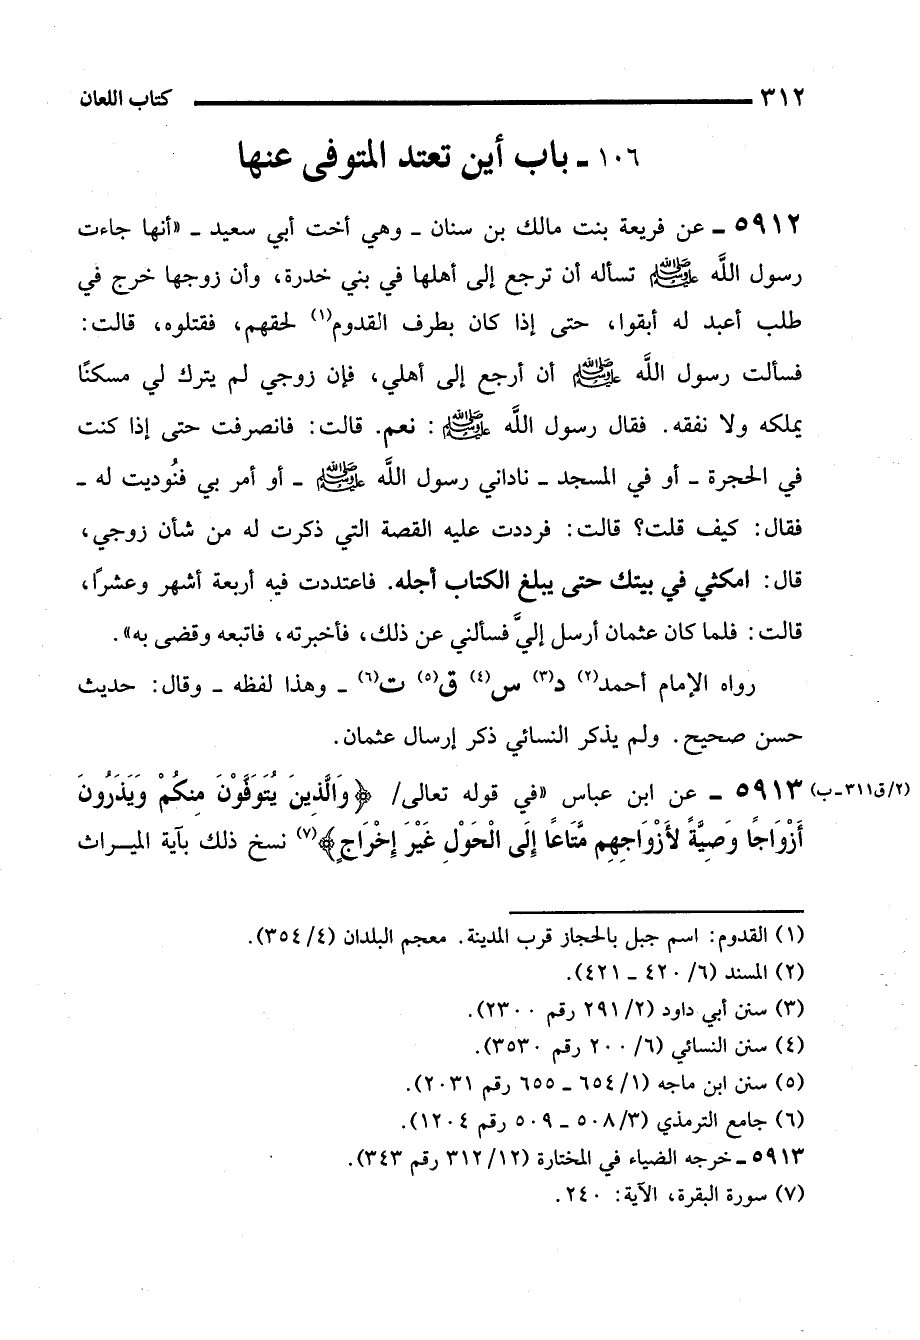 ٣١٢ كتاب اللعان
١٠٦ ـ باب أين تعتد المتوفى عنها
٥٩١٢ ـ عن فريعة بنت مالك بن سنان ـ وهي أخت أبي سعيد ـ «أنها جاءت
رسول اللَّه ﷺ تسأله أن ترجع إلى أهلها في بني خدرة، وأن زوجها خرج في
طلب أعبد له أبقوا، حتى إذا كان بطرف القدوم(١) لحقهم، فقتلوه، قالت:
فسألت رسول اللَّه ﷺ أن أرجع إلى أهلي، فإن زوجي لم يترك لي مسكنًا
يملكه ولا نفقه. فقال رسول اللَّه ﷺ: نعم. قالت: فانصرفت حتى إذا كنت
في الحجرة ـ أو في المسجد ـ ناداني رسول اللَّه ﷺ ـ أو أمر بي فنُوديت له ـ
فقال: كيف قلت؟ قالت: فرددت عليه القصة التي ذكرت له من شأن زوجي،
قال: امكثي في بيتك حتى يبلغ الكتاب أجله. فاعتددت فيه أربعة أشهر وعشرًا،
قالت: فلما كان عثمان أرسل إليَّ فسألني عن ذلك، فأخبرته، فاتبعه وقضى به».
رواه الإمام أحمد(٢) د(٣) س(٤) ق(٥) ت(٦) ـ وهذا لفظه ـ وقال: حديث
حسن صحيح. ولم يذكر النسائي ذكر إرسال عثمان.
٥٩١٣ ـ عن ابن عباس «في قوله تعالى/ ﴿وَالَّذِينَ يُتَوَفَّوْنَ مِنكُمْ وَيَذَرُونَ (٢/ق٣١١-ب)
أَزْوَاجًا وَصِيَّةً لأَزْوَاجِهِم مَّتَاعًا إِلَى الْحَوْلِ غَيْرَ إِخْرَاجٍ﴾(٧) نسخ ذلك بآية الميراث
(١) القدوم: اسم جبل بالحجاز قرب المدينة. معجم البلدان (٤/ ٣٥٤).
(٢) المسند (٦/ ٤٢٠ ـ ٤٢١).
(٣) سنن أبي داود (٢/ ٢٩١ رقم ٢٣٠٠).
(٤) سنن النسائي (٦/ ٢٠٠ رقم ٣٥٣٠).
(٥) سنن ابن ماجه (١/ ٦٥٤ ـ ٦٥٥ رقم ٢٠٣١).
(٦) جامع الترمذي (٣/ ٥٠٨ ـ ٥٠٩ رقم ١٢٠٤).
٥٩١٣ ـ خرجه الضياء في المختارة (١٢/ ٣١٢ رقم ٣٤٣).
(٧) سورة البقرة، الآية: ٢٤٠.